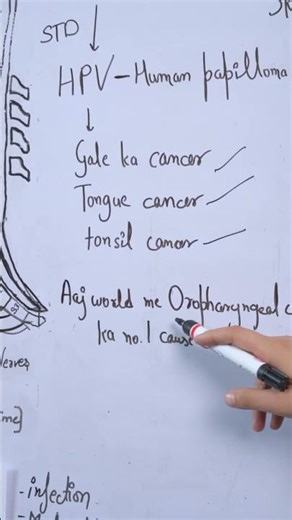 STD
HPV - Human papilloma
Gale ka cancer
Tongue cancer
tonsil cancer
Aaj world me Oropharyngeal
ka no. 1 cause
Nerves
- infection